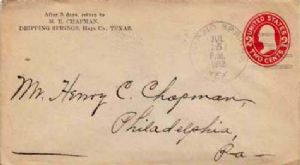 After 5 days, return to
M. E. CHAPMAN,
DRIPPING SPRINGS, Hays Co., TEXAS.
JUL
P.M.
TEX.
UNITED STATES
TWO CENTS
Mr. Henry C. Chapman,
Philadelphia,
Pa—